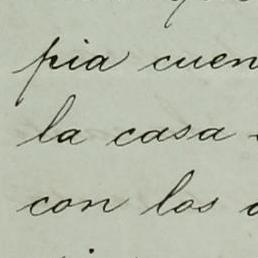 pia cuen
la casa
con los